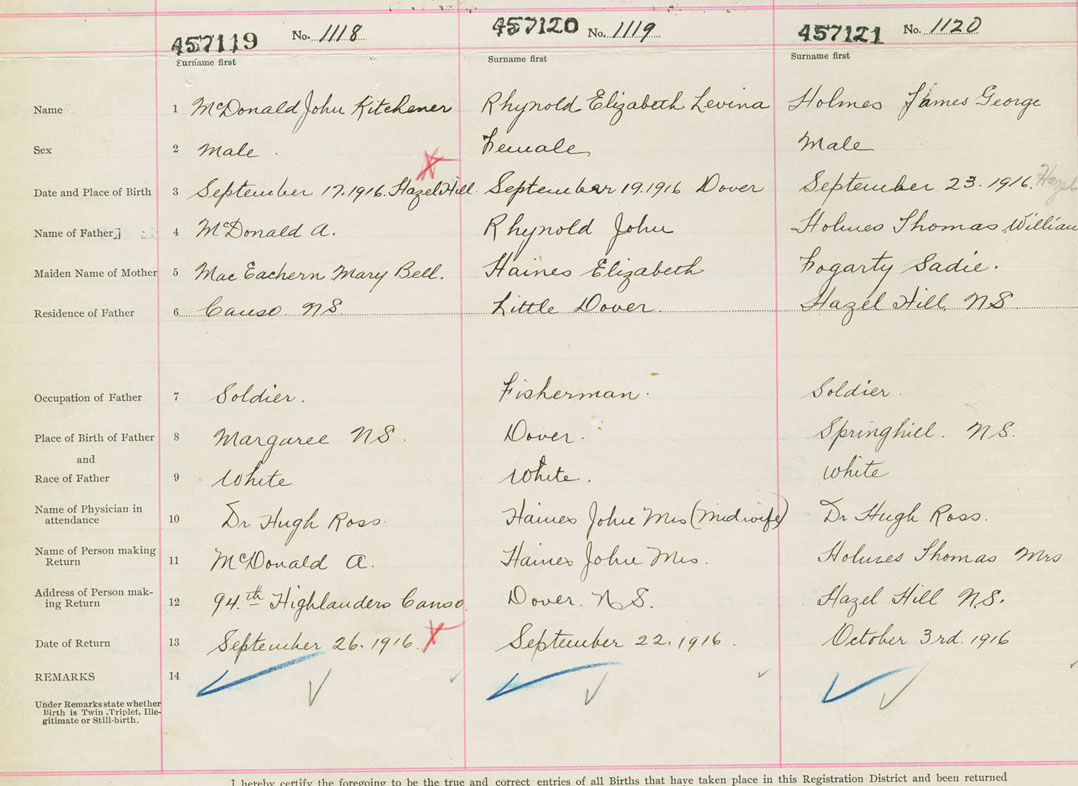 457119 No. 1118 457120 No. 1119 457121 No. 1120
Surname first Surname first Surname first
Name 1 McDonald John Kitchener Rhynold Elizabeth Levina Holmes James George
Sex 2 Male Female Male
Date and Place of Birth 3 September 17.1916. Hazel Hill September 19.1916 Dover September 23.1916. Hazel
Name of Father 4 McDonald A. Rhynold John Holmes Thomas William
Maiden Name of Mother 5 Mac Eachern Mary Bell. Haines Elizabeth Fogarty Sadie.
Residence of Father 6 Canso NS Little Dover. Hazel Hill NS.
Occupation of Father 7 Soldier. Fisherman. Soldier.
Place of Birth of Father 8 Margaree NS. Dover. Springhill. NS.
and
Race of Father 9 White White. White
Name of Physician in
attendance 10 Dr Hugh Ross Haines John Mrs (Midwife) Dr Hugh Ross.
Name of Person making
Return 11 McDonald A. Haines John Mrs. Holmes Thomas Mrs
Address of Person mak-
ing Return 12 94th Highlanders Canso Dover. N.S. Hazel Hill NS.
Date of Return 13 September 26.1916. September 22.1916. October 3rd.1916
REMARKS 14
Under Remarks state whether
Birth is Twin, Triplet, Ille-
gitimate or Still-birth.
I hereby certify the foregoing to be the true and correct entries of all Births that have taken place in this Registration District and been returned